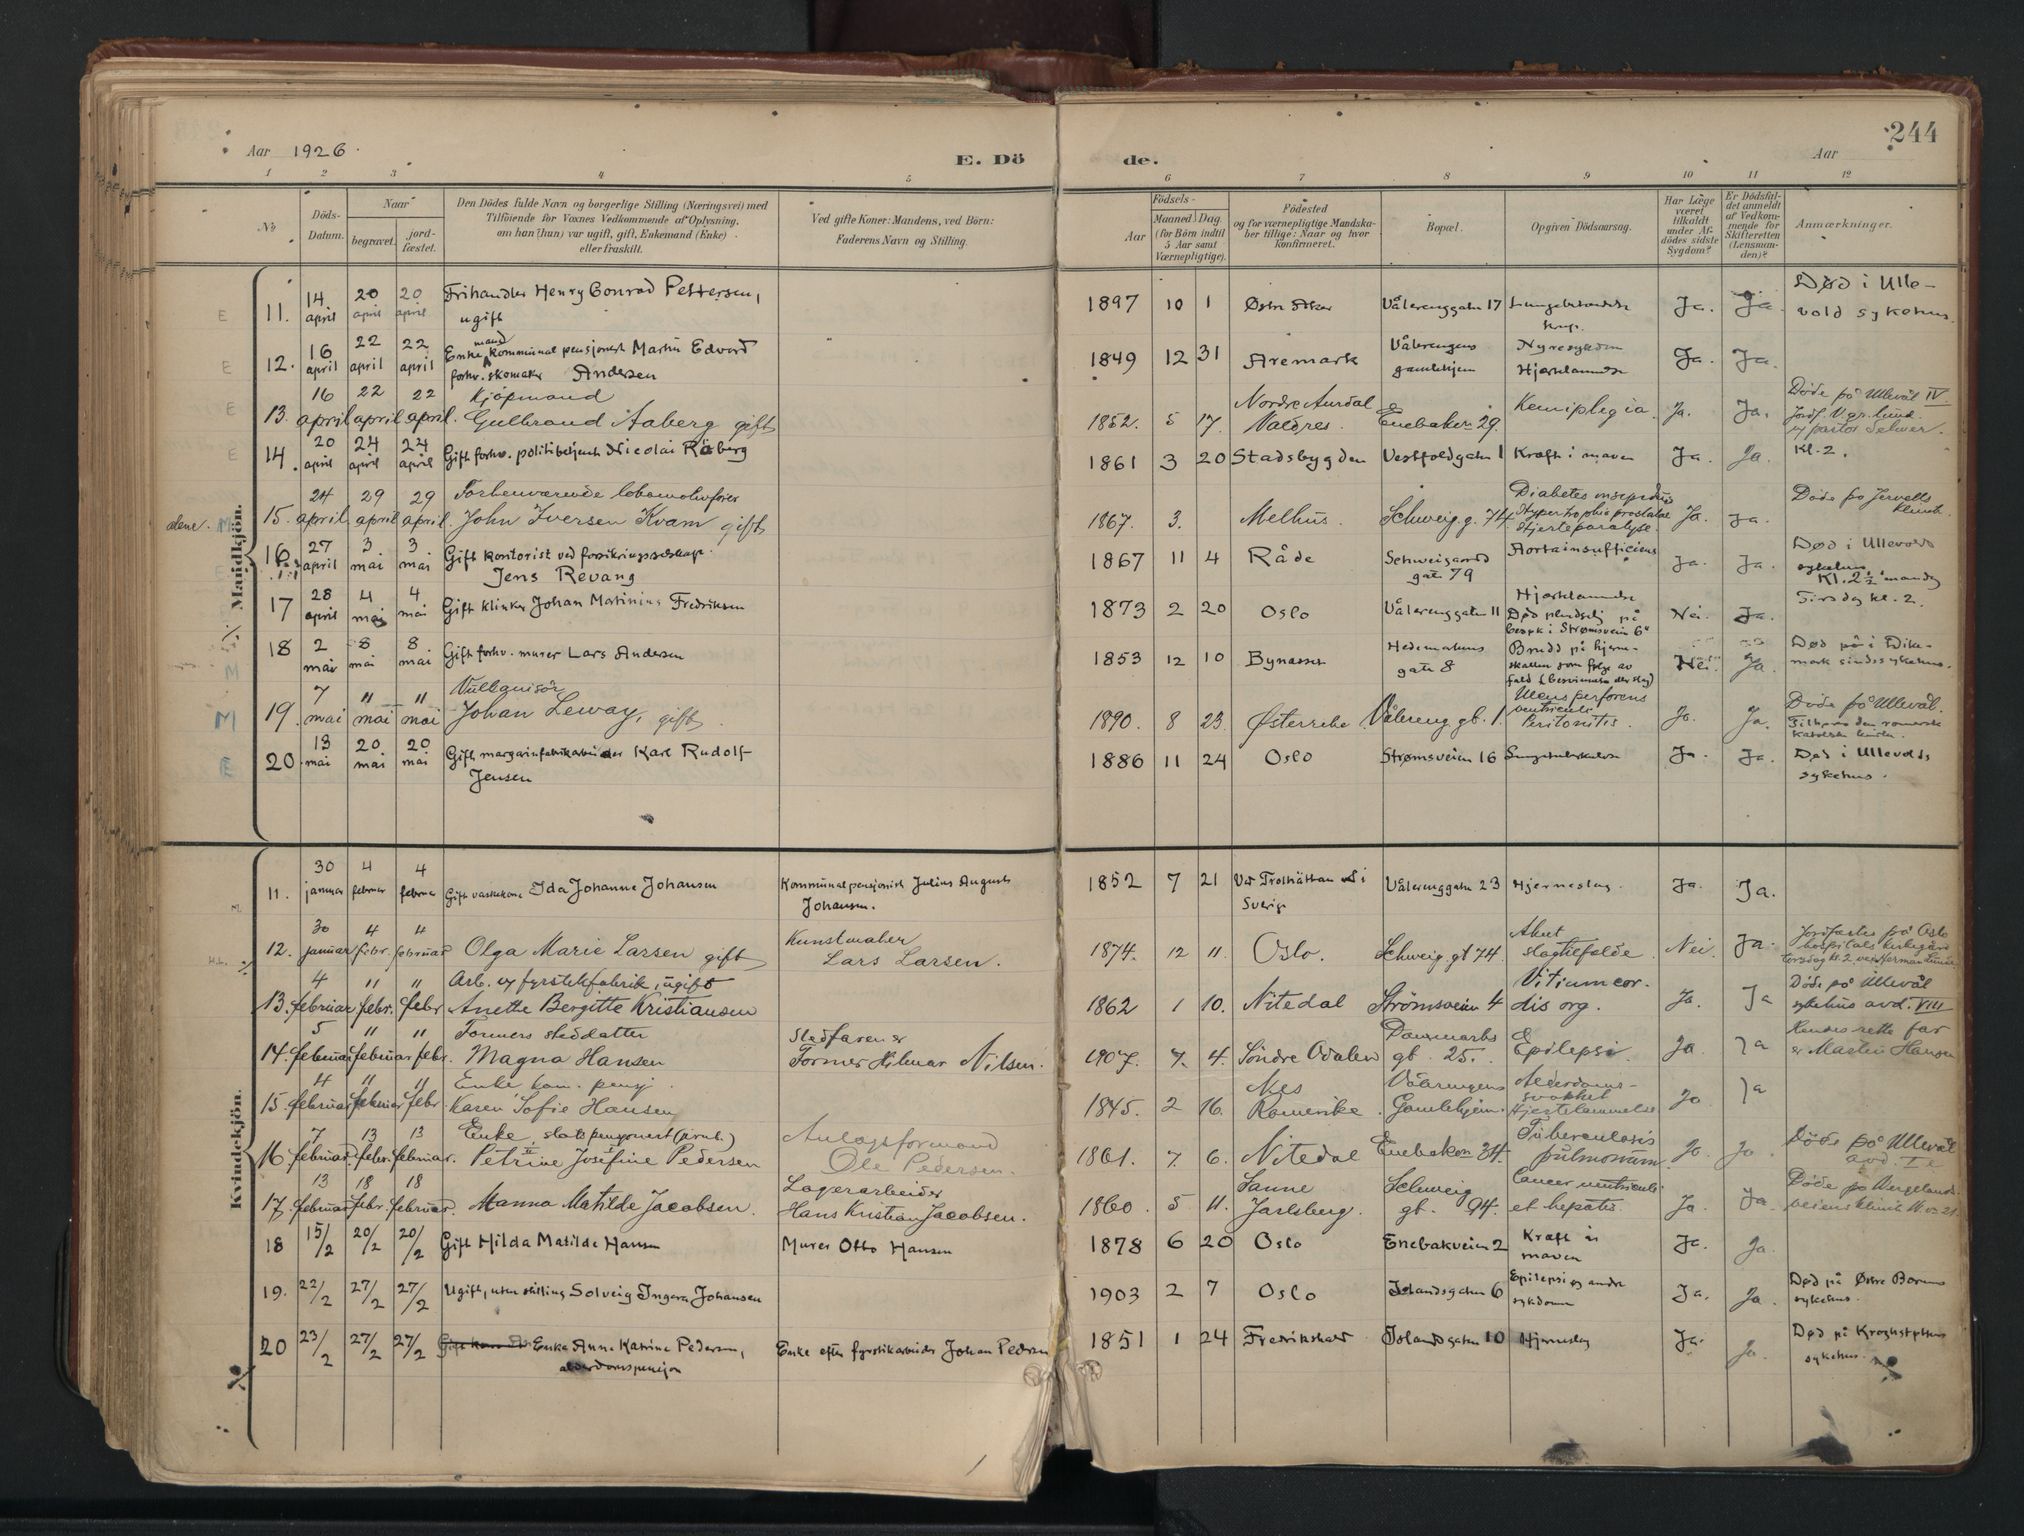 244
Aar 1926.
E. Dö de.
Aar
1 2 3 4 5 6 7 8 9 10 11 12
No
Döds-Datum.
Naar
begravet.
jord-fæstet.
Den Dödes fulde Navn og borgerlige Stilling (Næringsvei) med
Tilföiende for Voxnes Vedkommende af Oplysning,
om han (hun) var ugift, gift, Enkemand (Enke)
eller fraskilt.
Ved gifte Koner: Mandens, ved Börn:
Faderens Navn og Stilling.
Födsels-
Aar
Maaned Dag
(for Börn indtil
5 Aar samt
Værnepligtige).
Födested
og for værnepligtige Mandska-
ber tillige: Naar og hvor
konfirmeret.
Bopæl.
Opgiven Dödsaarsag.
Har Læge
været
tilkaldt
under Af-
dödes sidste
Sygdom?
Er Dödsfal-
det anmeldt
af Vedkom-
mende for
Skifteretten
(Lensman-
den)?
Anmærkninger.
Mandkjön.
11. 14 april 20 april 20 april Frihandler Henry Conrad Pettersen, ugift 1897 10 1 Østre Aker Vålerenggatn 17 Ja. Ja. Død i Ulle-
vold sykehus.
12. 16 april 22 april 22 april Enkemand kommunal pensjonist Martin Edvard
forhv. skomaker Andersen 1849 12 31 Aremark Vålerengens gamlehjem Nyresykdom Hjertelammelse Ja. Ja.
13. 16 april 22 april 22 april. Kjöpmand
Gulbrand Aaberg gift 1852. 5 17. Nordre Aurdal Valdres. Enebakkv 29. Hemiplegia. Ja. Ja. Döde på Ullevål IV.
14. 20 april 24 april 24 april Gift forhv. politibetjent Nicolai Röberg 1861 3 20 Stadsbygden Vestfoldgatn 1 Kræft i maven Ja. Ja. Kl. 2.
alene. M
15. 24 april 29 april 29 april. Forhenværende lokomotivförer
John Iversen Kvam gift 1867. 3. Melhus. Schweig. g. 74 Diabetes insipidus
Hypertrophia prostatae
Hjerteparalyse. Ja. Ja. Döde på Jervells klinik.
16. 27 april 3 mai 3 mai Gift kontorist ved forsikringsselskap.
Jens Revang 1867 11 4 Råde Schweigaard gate 79 Aortainsufficiens Ja. Ja. Død i Ullevold
sykehus
Kl. 2½ mandag
17 28 april 4 mai 4 mai Gift klinker Johan Martinius Fredriksen 1873 2 20 Oslo Vålerenggatn 11 Hjertelammelse
Død pludselig på
besøk i Strømsvein 6" Nei. Ja. Tirsdag kl. 2.
18 2 mai 8 mai 8 mai Gift forhv. murer Lars Andersen 1853 12 10 Bynæsset Hedemarkens gate 8 Brudd på hjerne-
skallen som følge av
fald Nei. Ja. Død på i Dike-
mark sindssykehus.
M
19. 7 mai 11 mai 11 mai Vulkanisör
Johan Leway, gift 1890. 8 23. Østerrike Vålereng gt. 1. Ulcus perforens
ventriculi
Peritonitis. Ja. Ja. Döde på Ullevål.
Tilhørte den romersk
katolske kirke.
20. 13 mai 20 mai 20 mai Gift margarinfabrikarbeider Karl Rudolf
Jensen 1886 11 24 Oslo Strømsveien 16 Lungetuberkulose Ja. Ja. Død i Ullevolds
sykehus.
Kvindekjön.
11. 30 januar 4 februar 4 februar Gift vaskekone Ida Johanne Johansen Kommunalpensjonist Julius August
Johansen. 1852 7 21 Ved Trolhättan i Sverige Vålerenggatn 23 Hjerneslag. Ja. Ja.
12. 30 januar 4 febr. 4 februar Olga Marie Larsen gift Kunstmaler
Lars Larsen. 1874. 12 11. Oslo. Schweig. gt 74. Akut
slagtilfælde. Nei. Ja. Jordfæstes på Oslo
hospitals kirkegård
torsdag kl. 2 ved Herman Lunde
13. 4 februar 11 febr. 11 febr Arb. v/ fyrstikfabrik, ugift
Anette Bergitte Kristiansen 1862 1 10. Nitedal Strömsveien 4 Vitium cor-
dis org. Ja. Ja Döde på Ullevål
sykehus avd. VIII
14. 5 februar 11 februar 11 febr. Formers steddatter
Magna Hansen Stedfaren er
Former Hilmar Nilsen. 1907. 7. 4. Söndre Odalen Danmarks gt. 25. Epilepsi. Ja Ja Hendes rette far
er Martin Hansen
15. 4 februar 11 februar 11 febr. Enke kom. pensj.
Karen Sofie Hansen 1845. 2 16. Nes Romerike. Vålerengens Gamlehjem. Alderdoms-
svakhet
Hjertelammelse Ja Ja
16. 7 februar. 13 febr. 13 februar. Enke, statspensjonert
Petrine Josefine Pedersen Anlægsformand
Ole Pedersen. 1861. 7. 6. Nitedal Enebakvn 34. Tuberculosis
pulmonum. Ja Ja. Döde på Ullevål
17. 13 februar 18 febr. 18 februar. Manna Matilde Jacobsen. Lagerarbeider
Hans Kristian Jacobsen. 1860. 5 11. Sanne Jarlsberg. Schweig gt. 94. Cancer ventriculi
et hepatis. Ja. Ja. Döde på Wergelands-
veiens klinik
18 15/2 20/2 20/2 Gift Hilda Matilde Hansen Murer Otto Hansen 1878 6 20 Oslo Enebakveien 2 Kræft i maven Ja. Ja.
19. 22/2 27/2 27/2 Ugift, uten stilling Solveig Ingera Johansen 1903 2 7 Oslo Islandsgaten 6 Epilepsi og andre
sykdomme Ja. Ja. Død på Østre Bærums
sykehus.
20 23/2 27/2 27/2 Enke Anne Katrine Pedersen,
alderdomspensjon Enke efter fyrstikarbeider Johan Pedersen 1851 1 24 Fredrikshald Islandsgaten 10 Hjerneslag Ja. Ja. Død på Krohgstøttens
sykehus.